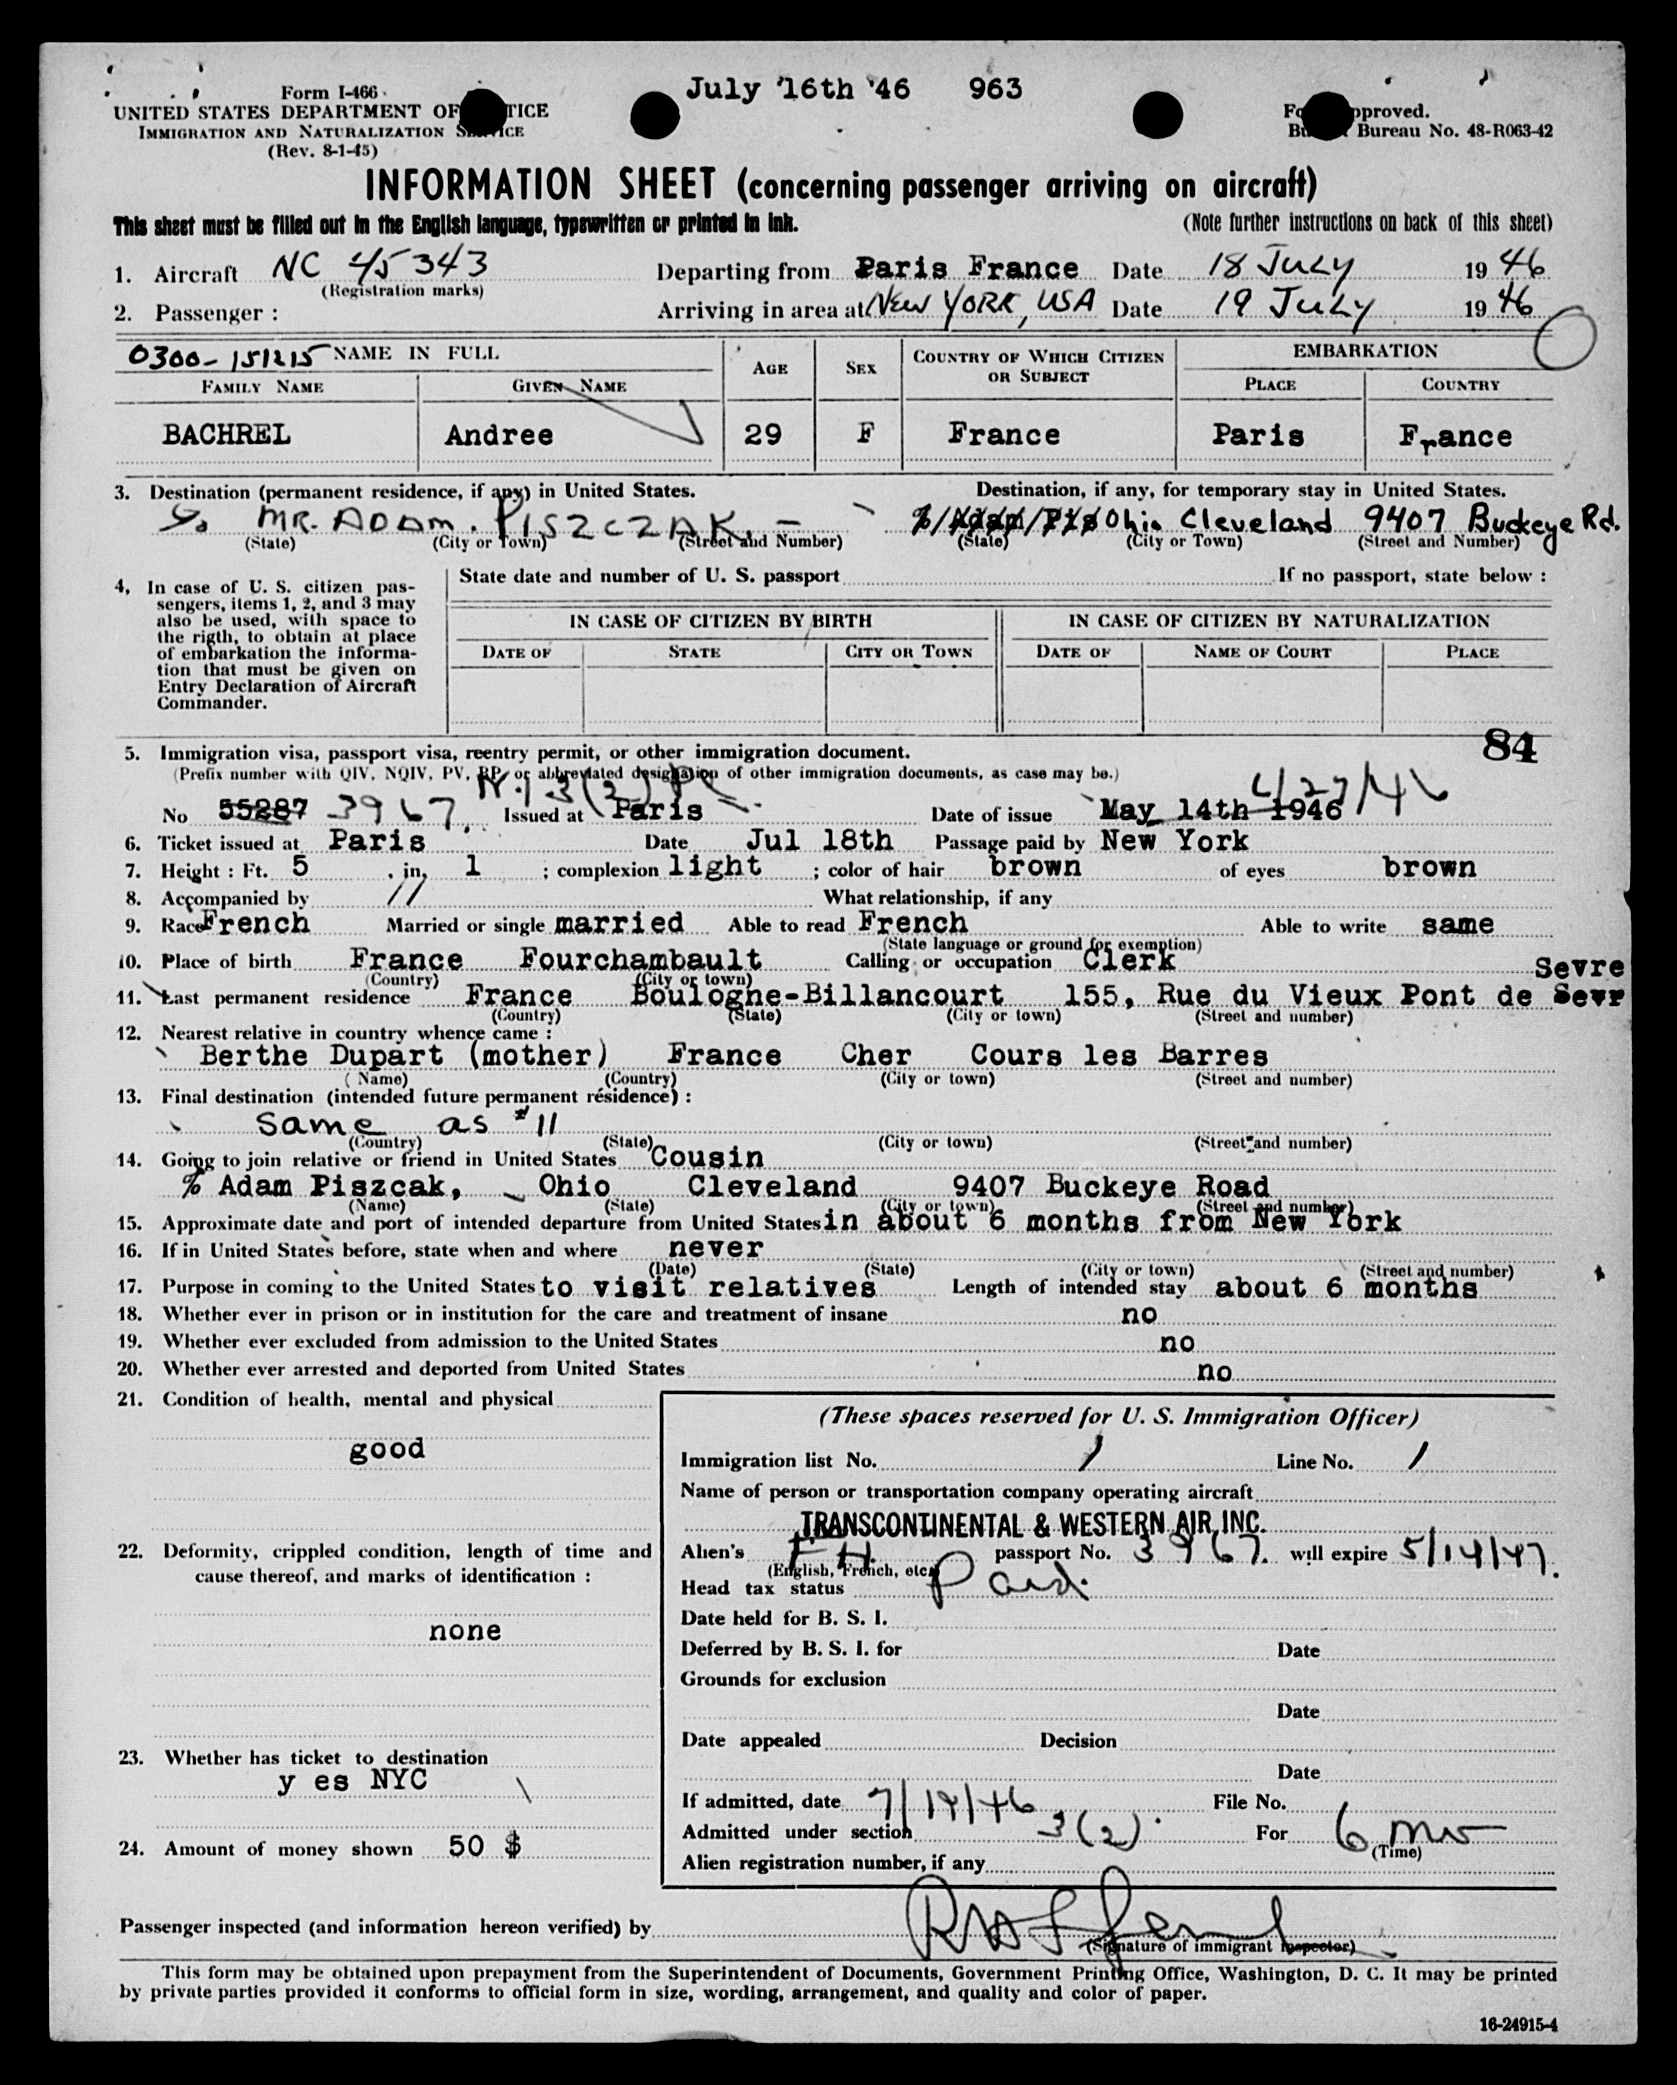 July 16th '46 963
Form I-466
UNITED STATES DEPARTMENT OF TICE
IMMIGRATION AND NATURALIZATION SERVICE
(Rev. 8-1-45)
Approved.
Bureau No. 48-R063-42
INFORMATION SHEET (concerning passenger arriving on aircraft)
This sheet must be filled out in the English language, typewritten or printed in ink. (Note further instructions on back of this sheet)
1. Aircraft NC 45343 Departing from Paris France Date 18 JULY 19 46
(Registration marks)
2. Passenger : Arriving in area at NEW YORK, USA Date 19 JULY 19 46
0300-151215 NAME IN FULL AGE SEX COUNTRY OF WHICH CITIZEN OR SUBJECT EMBARKATION
FAMILY NAME GIVEN NAME PLACE COUNTRY
BACHREL Andree 29 F France Paris France
3. Destination (permanent residence, if any) in United States. Destination, if any, for temporary stay in United States.
MR. ADAM. PISZCZAK. Ohio Cleveland 9407 Buckeye Rd.
(State) (City or Town) (Street and Number) (State) (City or Town) (Street and Number)
4. In case of U. S. citizen pas-
sengers, items 1, 2, and 3 may
also be used, with space to
the rigth, to obtain at place
of embarkation the informa-
tion that must be given on
Entry Declaration of Aircraft
Commander.
State date and number of U. S. passport If no passport, state below :
IN CASE OF CITIZEN BY BIRTH IN CASE OF CITIZEN BY NATURALIZATION
DATE OF STATE CITY OR TOWN DATE OF NAME OF COURT PLACE
84
5. Immigration visa, passport visa, reentry permit, or other immigration document.
(Prefix number with QIV, NQIV, PV, RP, or abbreviated designation of other immigration documents, as case may be.)
3(2) 4/27/46
No 55287 3967. Issued at Paris Date of issue May 14th 1946
6. Ticket issued at Paris Date Jul 18th Passage paid by New York
7. Height : Ft. 5 . in. 1 ; complexion light ; color of hair brown of eyes brown
8. Accompanied by // What relationship, if any
9. Race French Married or single married Able to read French Able to write same
(State language or ground for exemption)
10. Place of birth France Fourchambault Calling or occupation Clerk
(Country) (City or town)
Sevre
11. Last permanent residence France Boulogne-Billancourt 155, Rue du Vieux Pont de Sevr
(Country) (State) (City or town) (Street and number)
12. Nearest relative in country whence came :
Berthe Dupart (mother) France Cher Cours les Barres
(Name) (Country) (City or town) (Street and number)
13. Final destination (intended future permanent résidence) :
Same as #11
(Country) (State) (City or town) (Street and number)
14. Going to join relative or friend in United States Cousin
% Adam Piszcak, Ohio Cleveland 9407 Buckeye Road
(Name) (State) (City or town) (Street and number)
15. Approximate date and port of intended departure from United States in about 6 months from New York
16. If in United States before, state when and where never
(Date) (State) (City or town) (Street and number)
17. Purpose in coming to the United States to visit relatives Length of intended stay about 6 months
18. Whether ever in prison or in institution for the care and treatment of insane no
19. Whether ever excluded from admission to the United States no
20. Whether ever arrested and deported from United States no
21. Condition of health, mental and physical
good
22. Deformity, crippled condition, length of time and
cause thereof, and marks of identification :
none
23. Whether has ticket to destination
y es NYC
24. Amount of money shown 50 $
(These spaces reserved for U. S. Immigration Officer)
Immigration list No. 1 Line No. 1
Name of person or transportation company operating aircraft
TRANSCONTINENTAL & WESTERN AIR, INC.
Alien's passport No. 3967. will expire 5/14/47.
(English, French, etc.)
Head tax status Paid.
Date held for B. S. I.
Deferred by B. S. I. for Date
Grounds for exclusion
Date
Date appealed Decision
Date
If admitted, date 7/19/46 File No.
Admitted under section 3(2). For 6 mo
(Time)
Alien registration number, if any
Passenger inspected (and information hereon verified) by
(Signature of immigrant inspector)
This form may be obtained upon prepayment from the Superintendent of Documents, Government Printing Office, Washington, D. C. It may be printed
by private parties provided it conforms to official form in size, wording, arrangement, and quality and color of paper.
16-24915-4